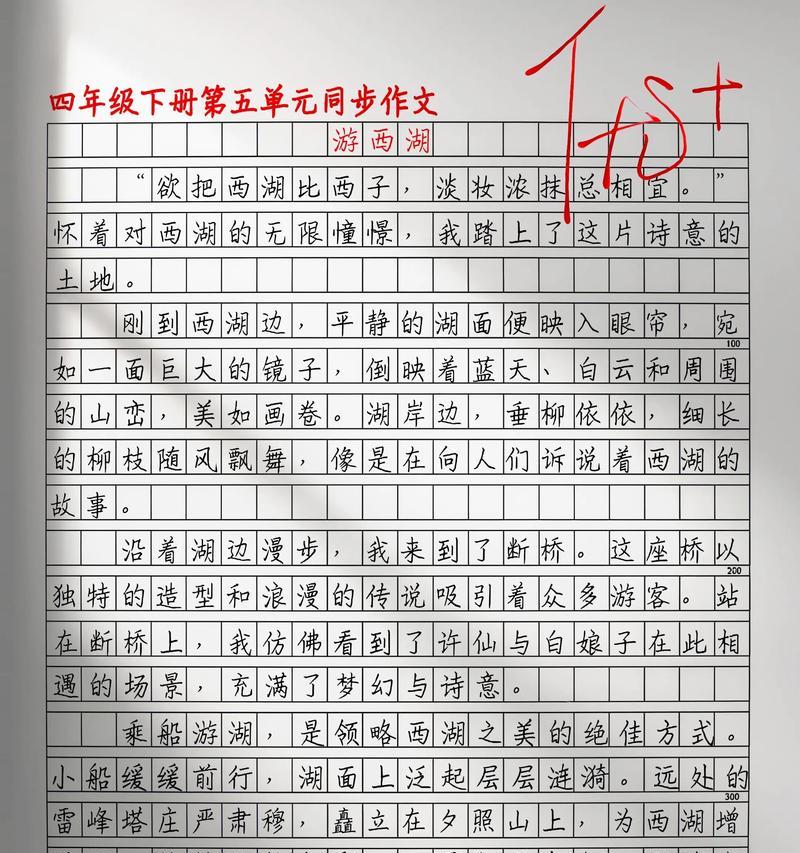 四年级下册第五单元同步作文
优+
游西湖
“欲把西湖比西子，淡妆浓抹总相宜。”
怀着对西湖的无限憧憬，我踏上了这片诗意的
土地。
刚到西湖边，平静的湖面便映入眼帘，宛
100
如一面巨大的镜子，倒映着蓝天、白云和周围
的山峦，美如画卷。湖岸边，垂柳依依，细长
的柳枝随风飘舞，像是在向人们诉说着西湖的
故事。
沿着湖边漫步，我来到了断桥。这座桥以
200
独特的造型和浪漫的传说吸引着众多游客。站
在断桥上，我仿佛看到了许仙与白娘子在此相
遇的场景，充满了梦幻与诗意。
乘船游湖，是领略西湖之美的绝佳方式。
小船缓缓前行，湖面上泛起层层涟漪。远处的
300
雷峰塔庄严肃穆，矗立在夕照山上，为西湖增